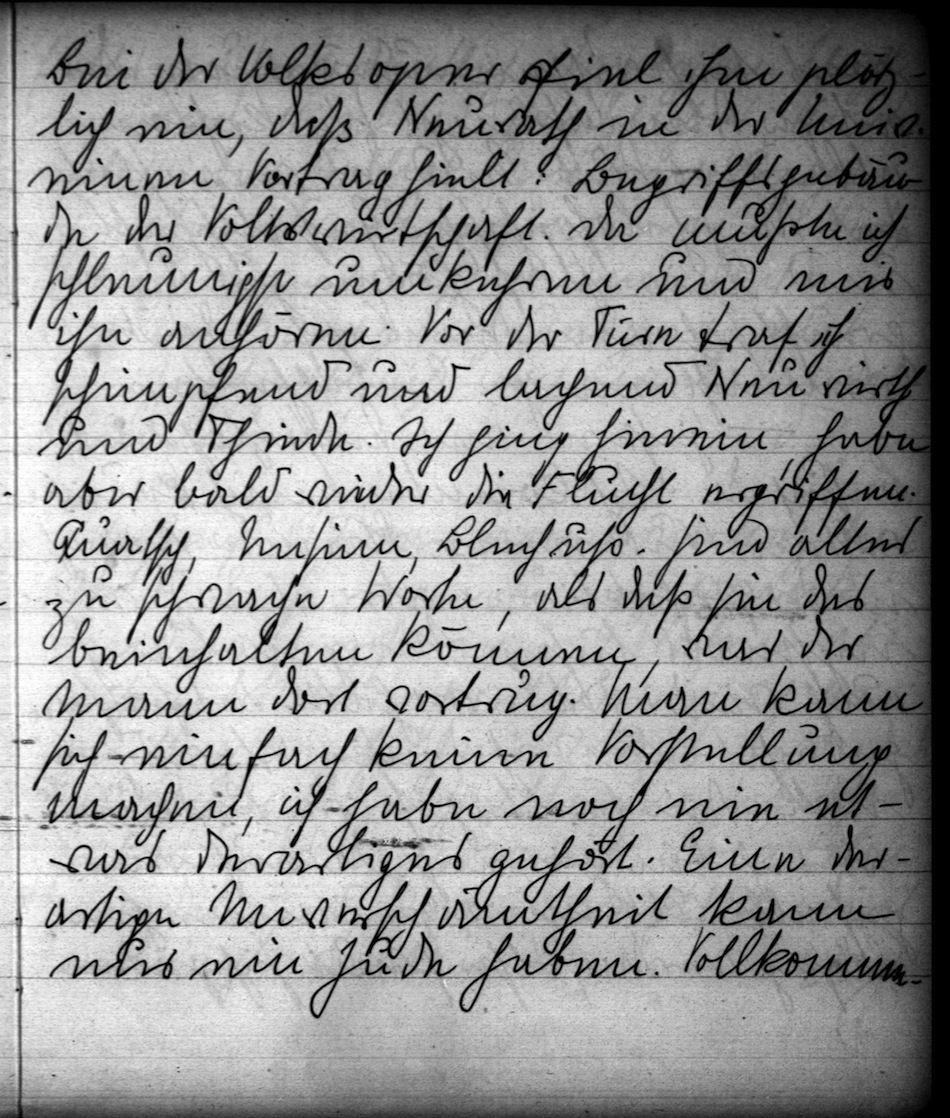 Bei der Volksoper fiel ihm plötz-
lich ein, daß Neurath in der Univ.
einen Vortrag hielt: Begriffsgebäu-
de der Volkswirtschaft. Da mußte ich
schleunigst umkehren und mir
ihn anhören. Vor der Türe traf ich
schimpfend und lachend
und Thirde. Ich ging hinein, habe
aber bald wieder die Flucht ergriffen.
Quatsch, Unsinn, Blech usw. sind alles
zu schwache Worte, als daß sie das
beinhalten können, was der
Mann dort vortrug. Man kann
sich einfach keine Vorstellung
machen, ich habe noch nie et-
was derartiges gehört. Eine der-
artige Unverschämtheit kann
nur ein Jude haben. Vollkomme-